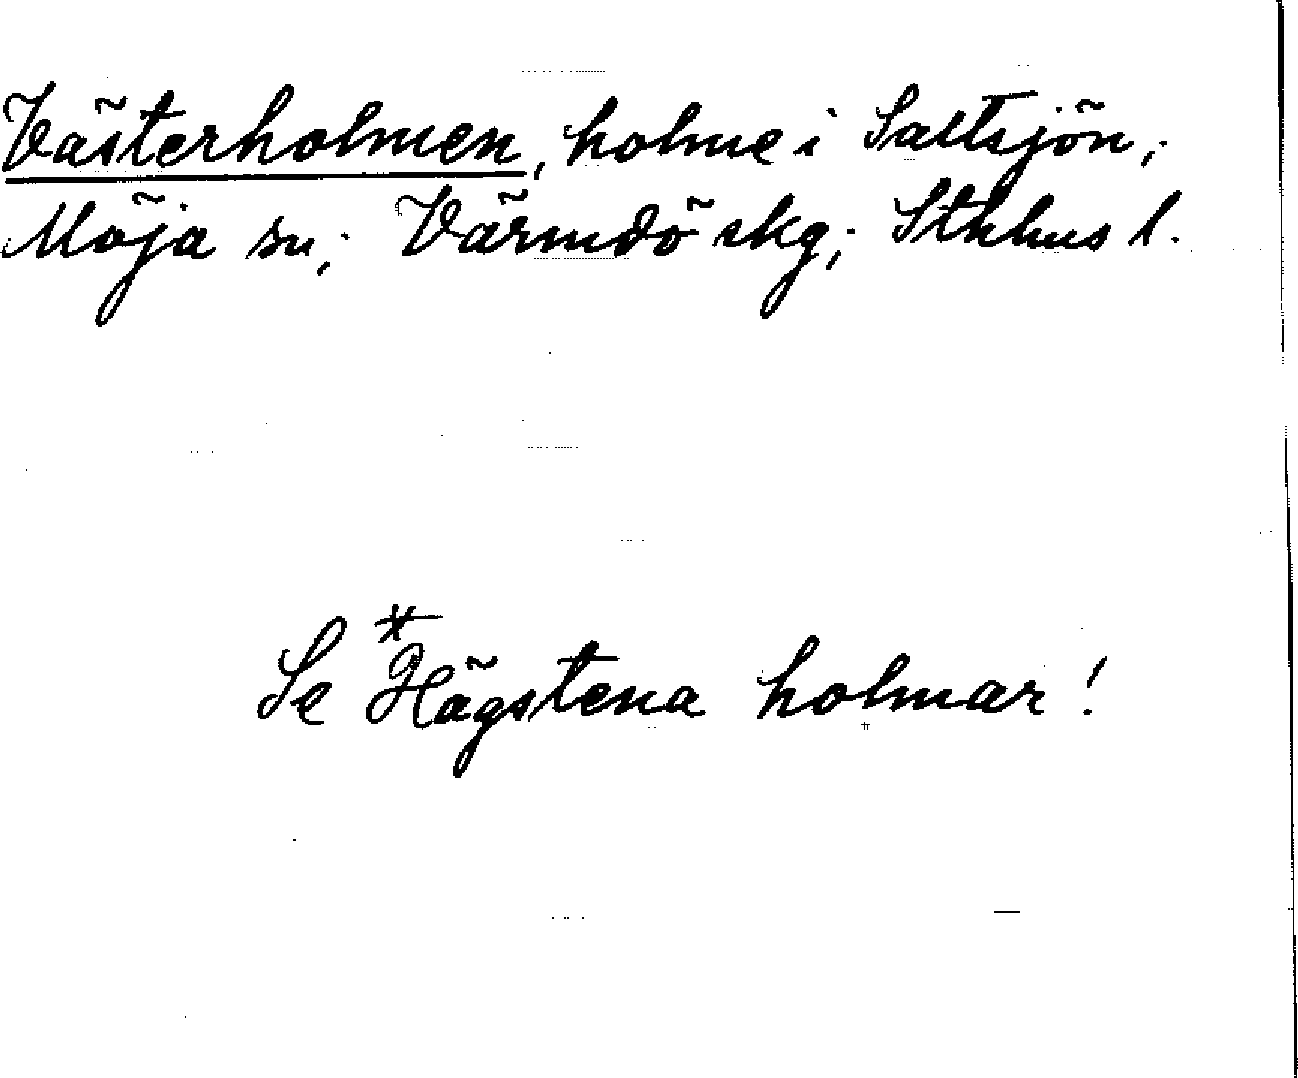 Västerholmen, holme i Saltsjön,
Möja sn, Värmdö skg, Sthlms l.
Se *Hägstena holmar!